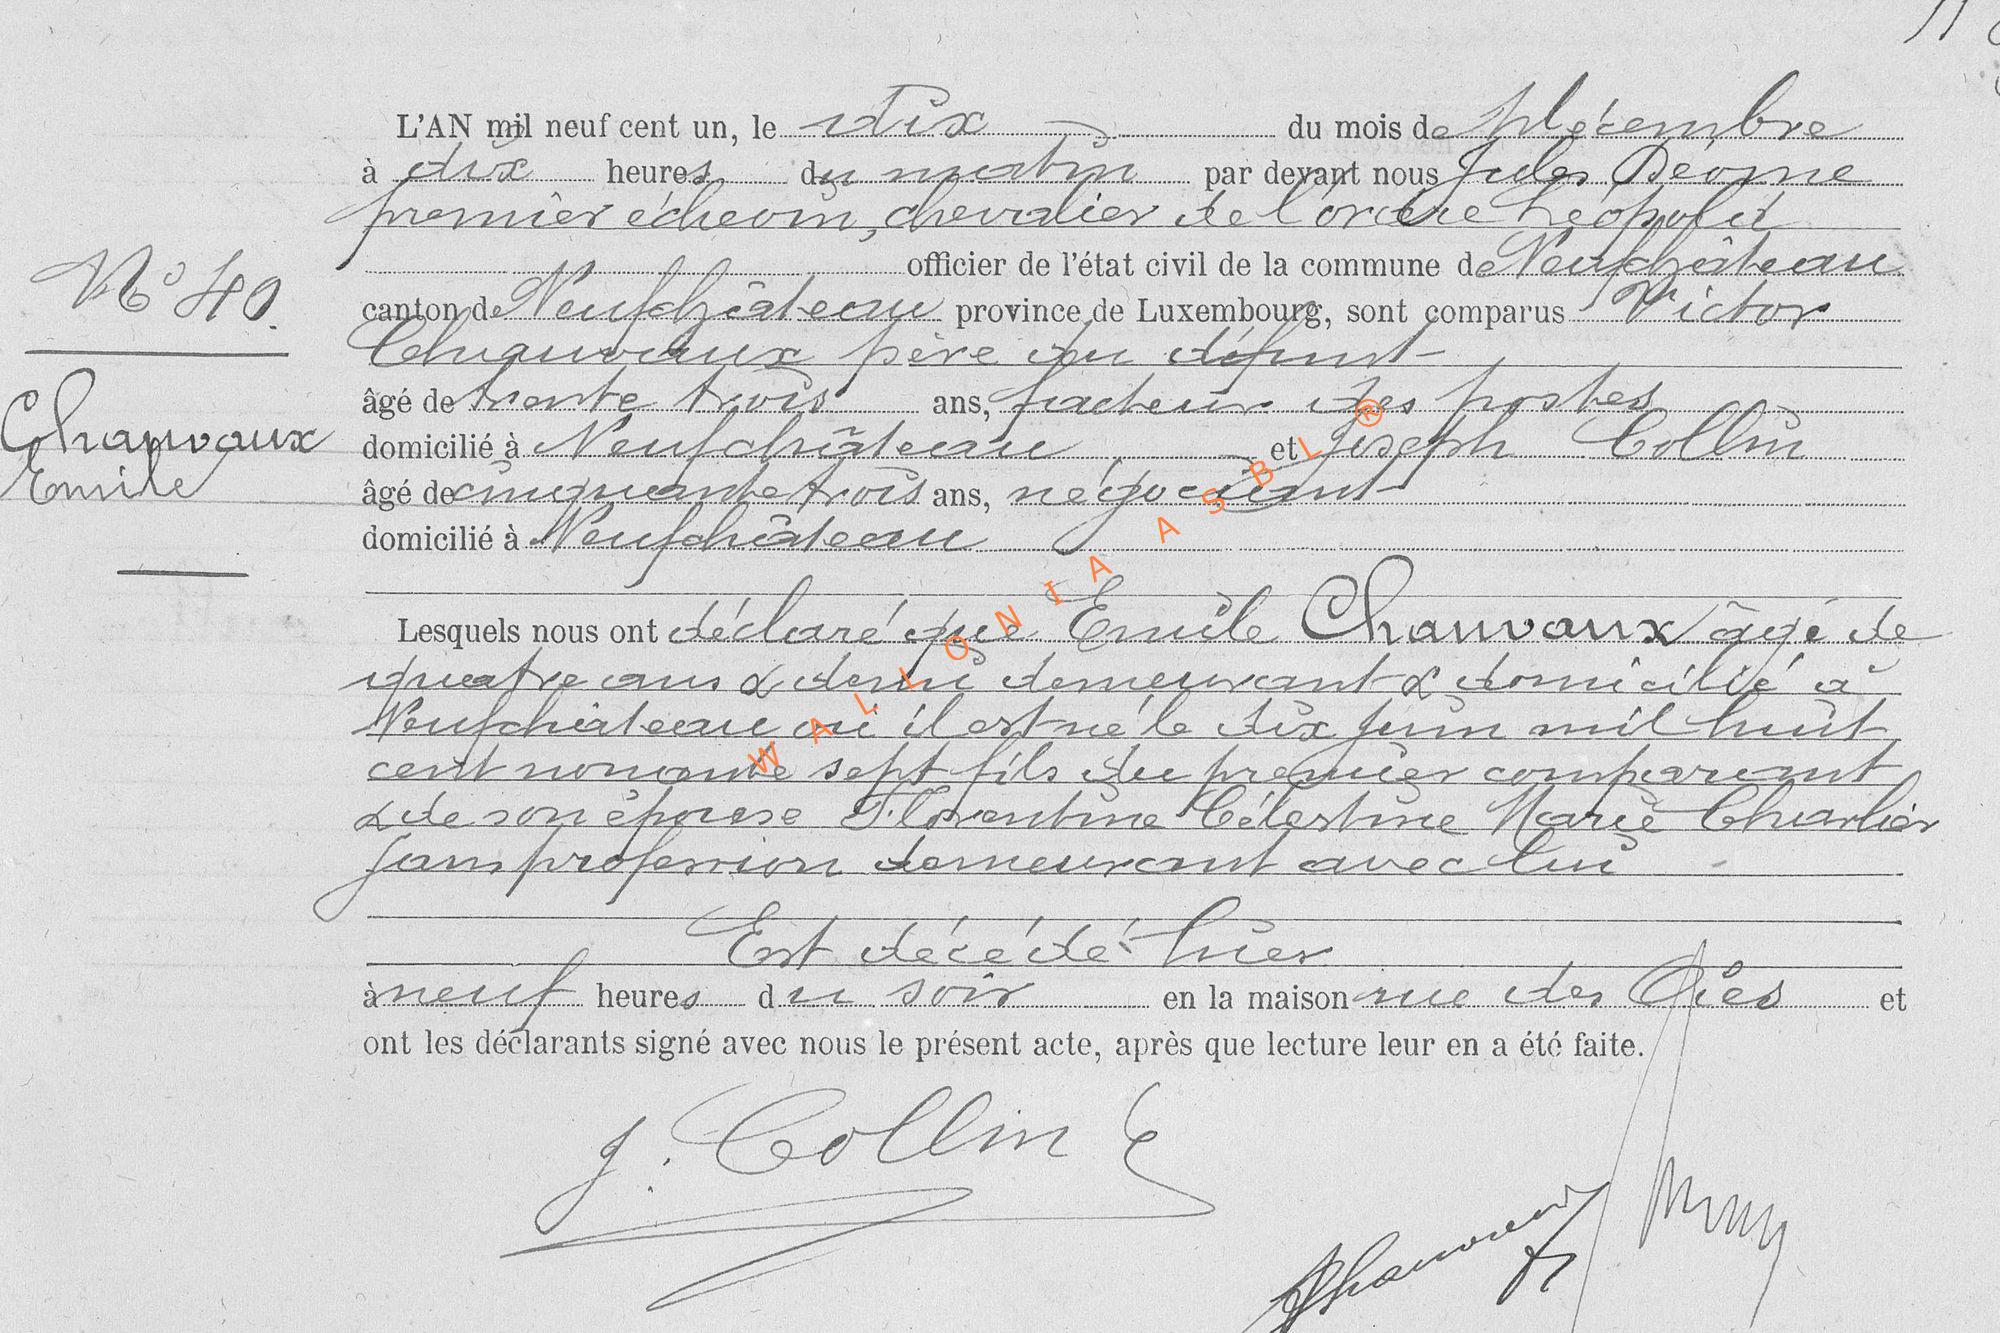 L'AN mil neuf cent un, le dix du mois de décembre
à dix heures du matin par devant nous Jules Déome
premier échevin, chevalier de l'ordre Léopold
officier de l'état civil de la commune de Neufchâteau
N° 40.
canton de Neufchâteau province de Luxembourg, sont comparus Victor
Chauvaux père du défunt
âgé de trente trois ans, facteur des postes
Chauvaux
domicilié à Neufchâteau et Joseph Collin
Emile
âgé de cinquante trois ans, négociant
domicilié à Neufchâteau
Lesquels nous ont déclaré que Emile Chauvaux âgé de
quatre ans & demi demeurant & domicilié à
Neufchâteau où il est né le dix juin mil huit
cent nonante sept fils du premier comparant
& de son épouse Florentine Célestine Marie Charlier
sans profession demeurant avec lui
Est décédé hier
à neuf heures du soir en la maison rue des Oies et
ont les déclarants signé avec nous le présent acte, après que lecture leur en a été faite.
J. Collin
Chauvaux V
WALLONIA ASBL ®